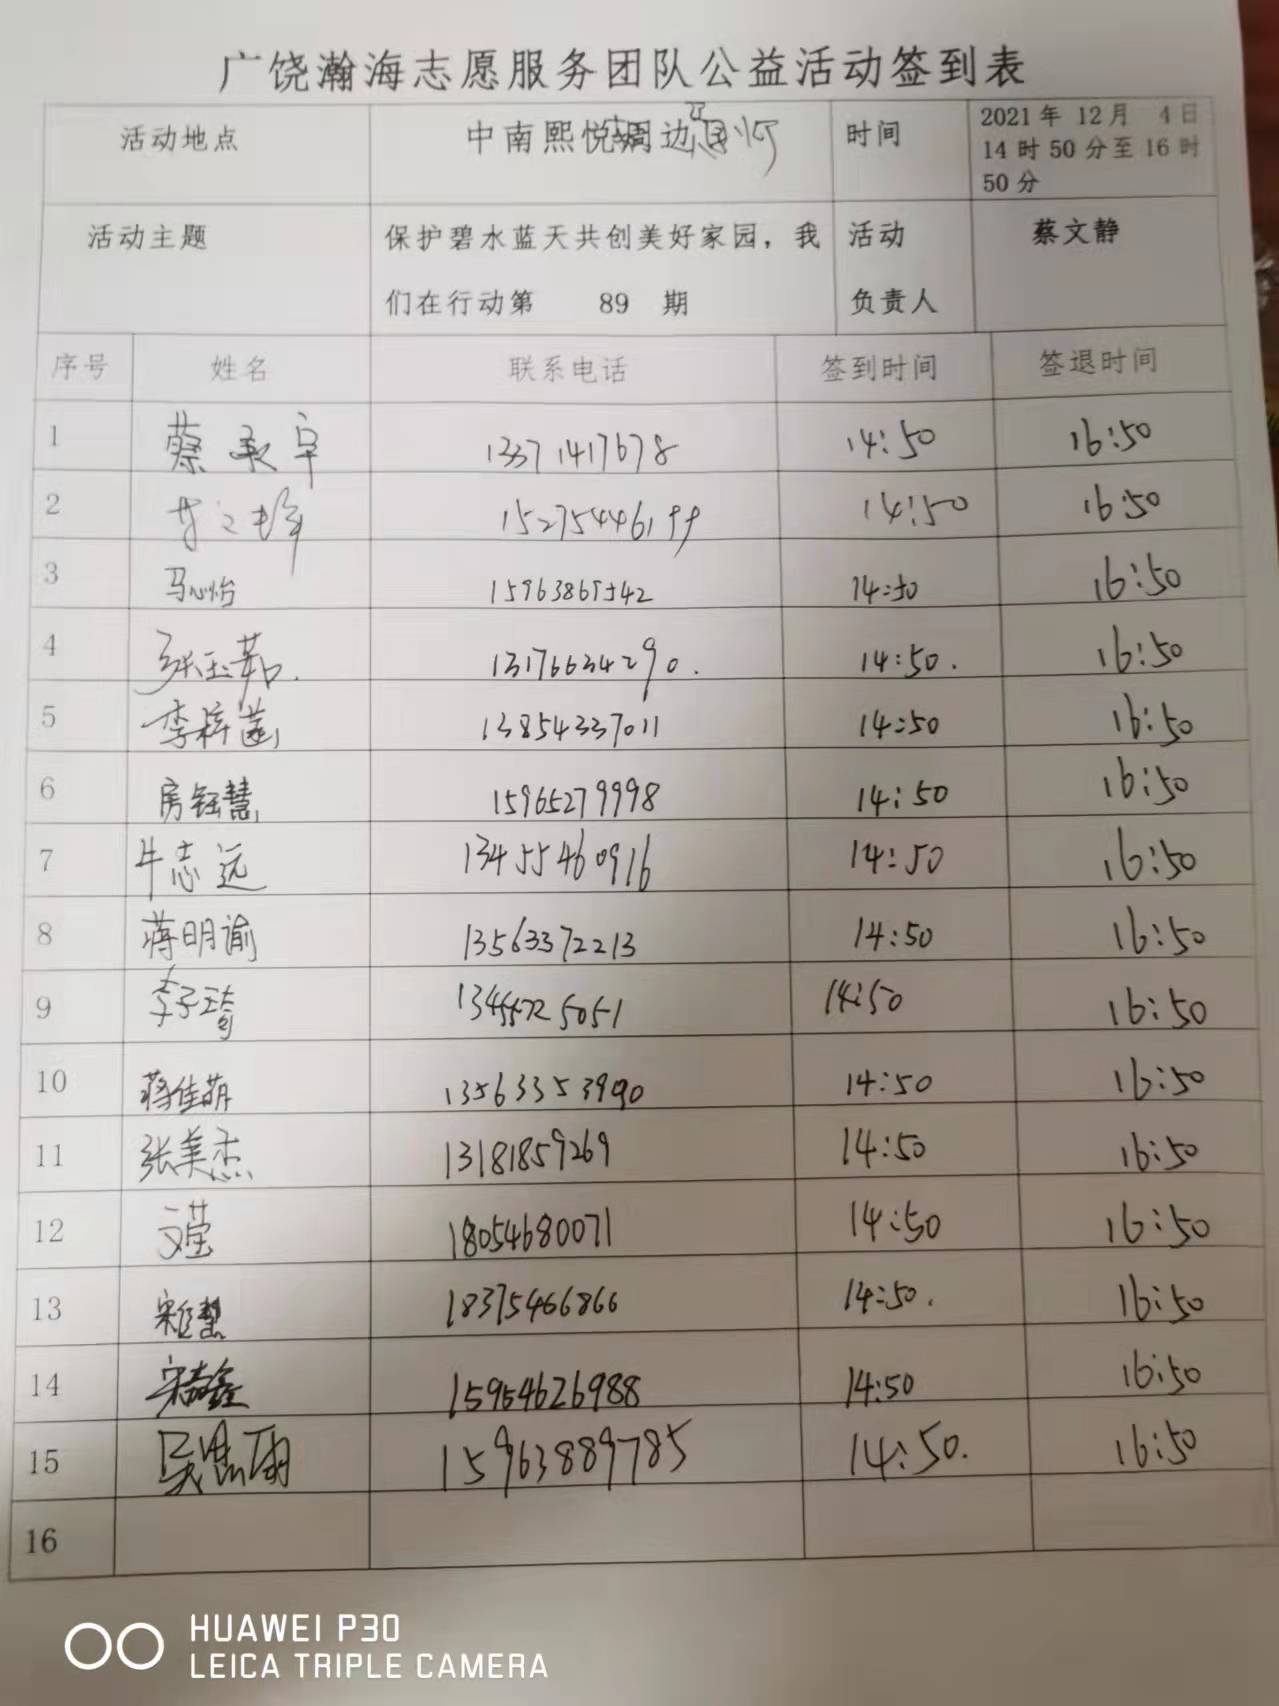 广饶瀚海志愿服务团队公益活动签到表
活动地点 中南熙悦 周边 时间 2021年 12月 4日
14时50分至16时
50分
活动主题 保护碧水蓝天共创美好家园，我 活动 蔡文静
们在行动第 89 期 负责人
序号 姓名 联系电话 签到时间 签退时间
1 蔡承宇 13371417678 14:50 16:50
2 15275446199 14:50 16:50
3 马心怡 15963869542 14:50 16:50
4 张玉茹. 13176634290. 14:50. 16:50
5 李梓菡 13854337011 14:50 16:50
6 房钰慧 15965279998 14:50 16:50
7 牛志远 13455460916 14:50 16:50
8 蒋明谕 13563372213 14:50 16:50
9 李子琦 14:50 16:50
10 蒋佳萌 13563353990 14:50 16:50
11 张美杰 13181859269 14:50 16:50
12 文莹 18054680071 14:50 16:50
13 18375466866 14:50. 16:50
14 15954626988 14:50 16:50
15 吴思雨 15963889785 14:50. 16:50
16
HUAWEI P30
LEICA TRIPLE CAMERA